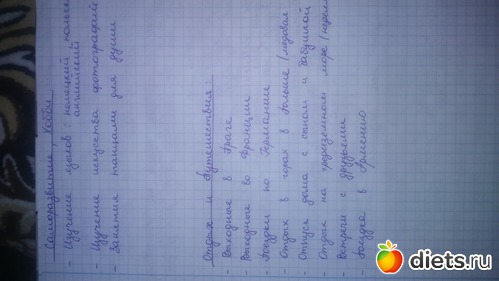 Саморазвитие, Хобби
- Изучение языков: немецкий,
английский
- Изучение искусства фотографий
- Занятия танцами для души
Отдых и путешествия:
- Выходные в Праге
- Выходные во Франции
- Поездки по Германии
- Отдых в горах в Польше /
- Отпуск дома с сыном и бабушкой
- Отдых на средиземном море /
- Встречи с друзьями
- Поездка в Армению
diets.ru